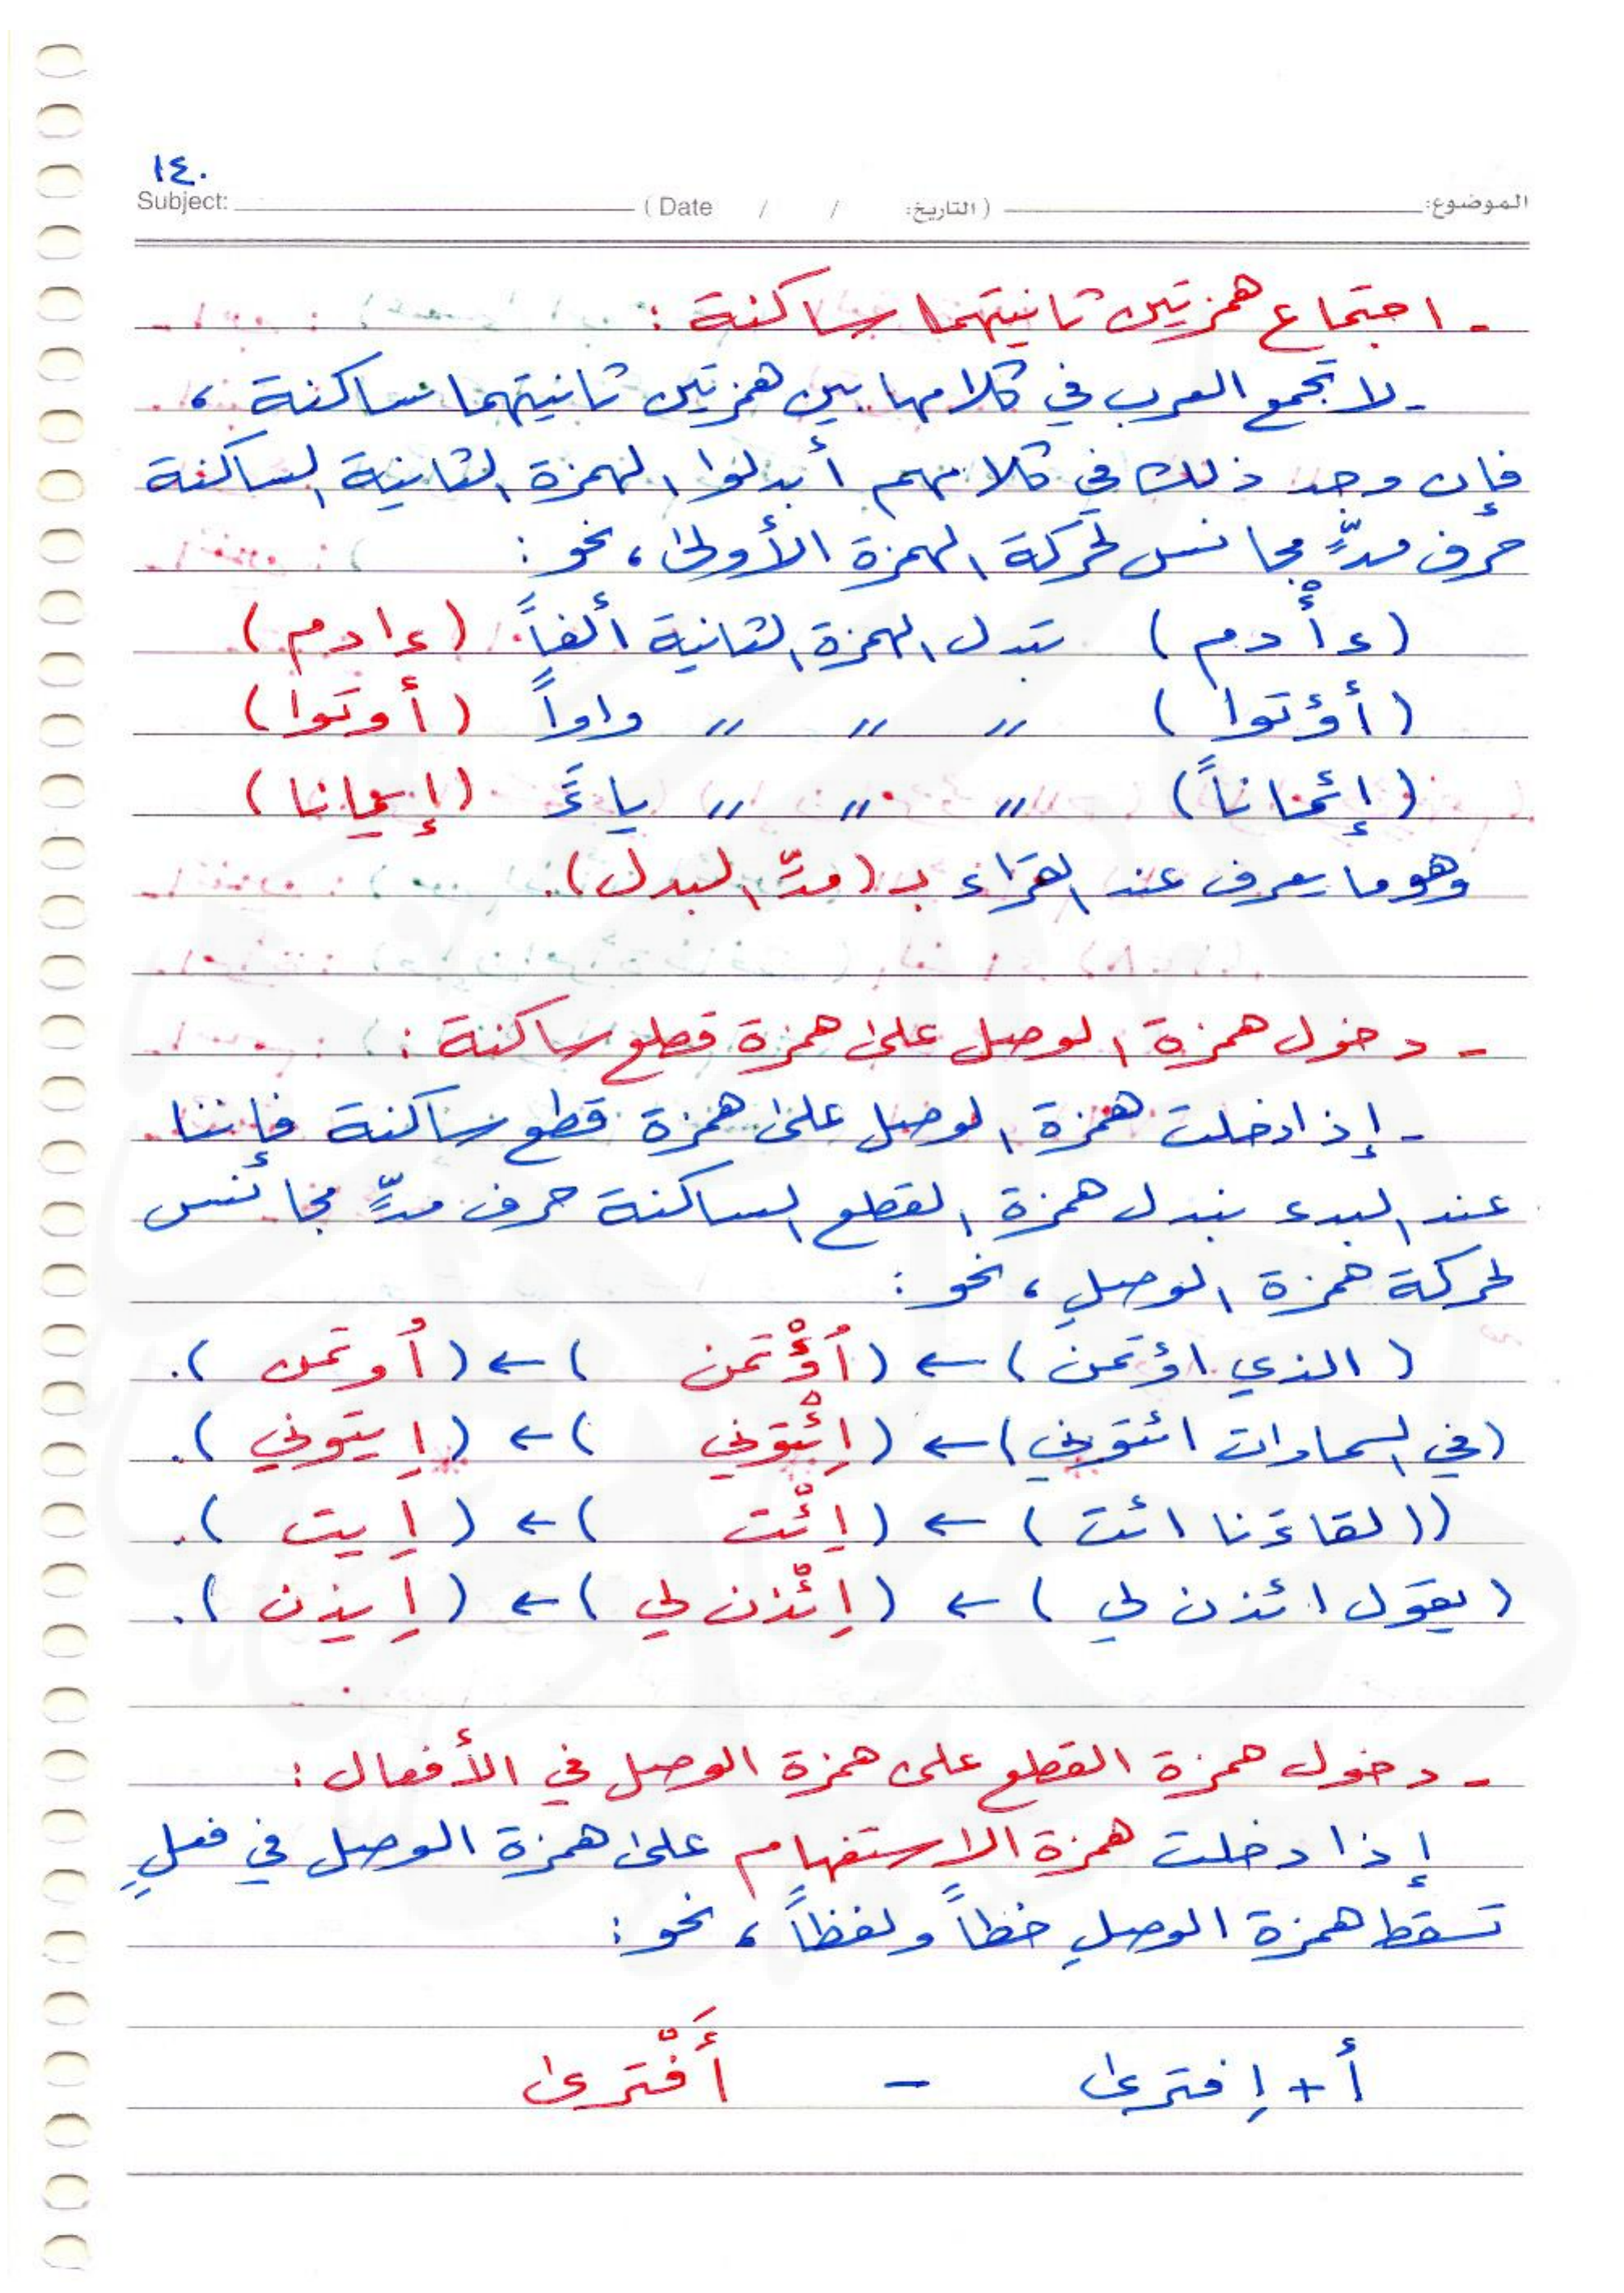 ١٤٠
Subject: (Date / / التاريخ:) الموضوع:
- اجتماع همزتين ثانيتهما ساكنة :
- لا تجمع العرب في كلامها بين همزتين ثانيتهما ساكنة ،
فإن وجد ذلك في كلامهم أبدلوا الهمزة الثانية الساكنة
حرف مدٍّ مجانس لحركة الهمزة الأولى ، نحو :
(ءأْدم) تبدل الهمزة الثانية ألفاً (ءادم)
(أؤتوا) " " " واواً (أوتوا)
(إئماناً) " " " ياءً (إيمانا)
وهو ما يعرف عند القرّاء بـ (مدّ البدل).
- دخول همزة الوصل على همزة قطع ساكنة :
- إذا دخلت همزة الوصل على همزة قطع ساكنة فإننا
عند البدء نبدل همزة القطع الساكنة حرف مدٍّ مجانس
لحركة همزة الوصل ، نحو :
(الذي اؤتمن) ← (اُؤْتمن) ← (اُوتمن).
(في السماوات ائتوني) ← (اِئْتوني) ← (اِيتوني).
((لقاءَنا ائت) ← (اِئْت) ← (اِيت).
(يقول ائذن لي) ← (اِئْذن لي) ← (اِيذن).
- دخول همزة القطع على همزة الوصل في الأفعال :
إذا دخلت همزة الاستفهام على همزة الوصل في فعلٍ
تسقط همزة الوصل خطاً ولفظاً ، نحو :
أ + اِفترى - أَفْترى